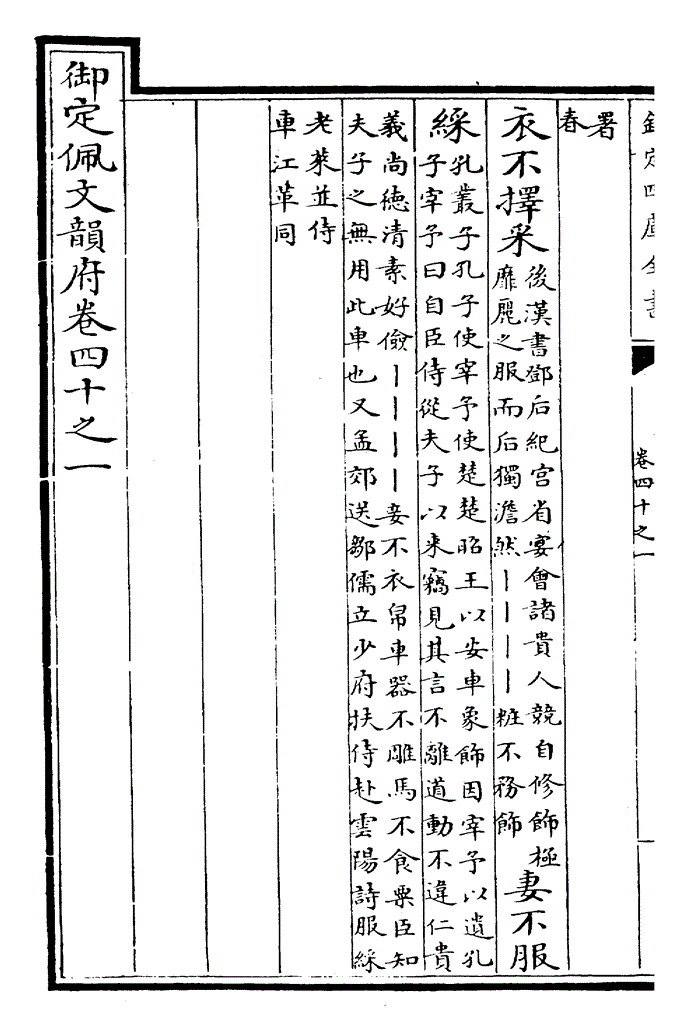 欽定四庫全書 卷四十之一
署
春
衣不擇采
後漢書鄧后紀宮省宴會諸貴人競自修飾極
靡麗之服而后獨澹然｜｜｜｜粧不務飾
妻不服
綵
孔叢子孔子使宰予使楚楚昭王以安車象飾因宰予以遺孔
子宰予曰自臣侍從夫子以来竊見其言不離道動不違仁貴
義尚徳清素好儉｜｜｜｜妾不衣帛車器不雕馬不食粟臣知
夫子之無用此車也又孟郊送鄒儒立少府扶侍赴雲陽詩服綵
老萊並侍
車江革同
御定佩文韻府卷四十之一